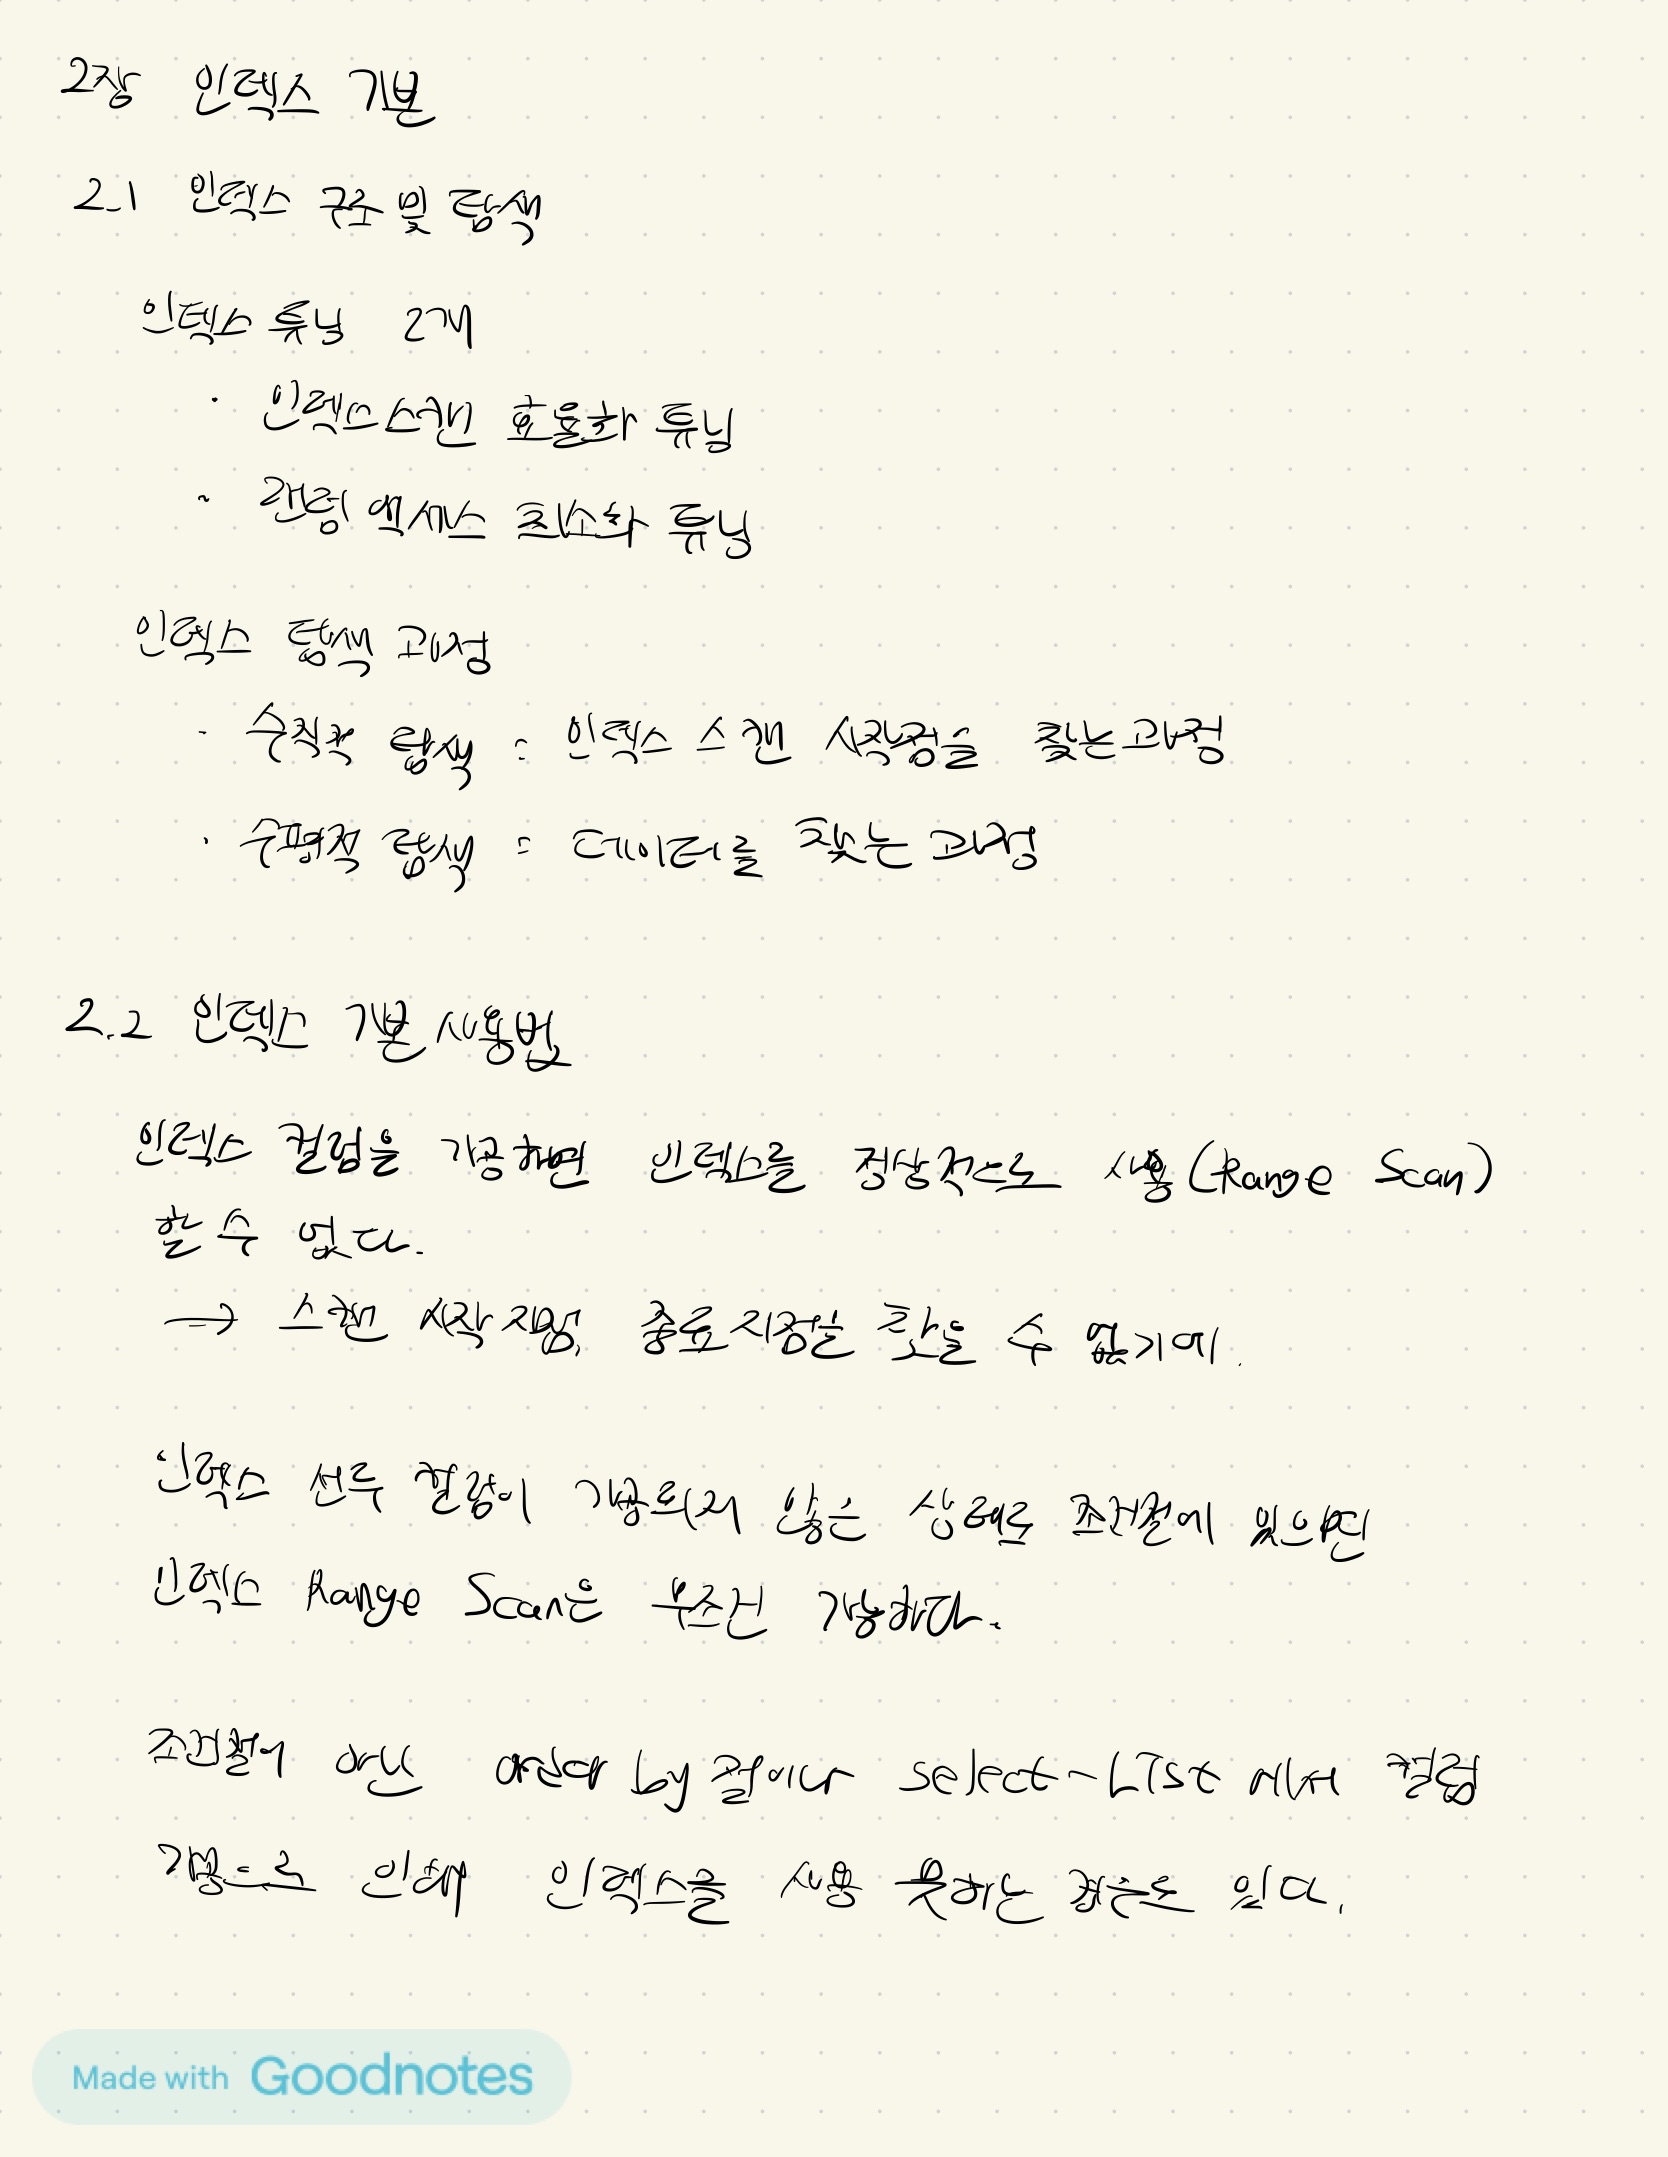 2장 인덱스 기본
2.1 인덱스 구조 및 탐색
인덱스 튜닝 2개
· 인덱스 스캔 효율화 튜닝
· 랜덤 액세스 최소화 튜닝
인덱스 탐색 과정
· 수직적 탐색 : 인덱스 스캔 시작점을 찾는 과정
· 수평적 탐색 : 데이터를 찾는 과정
2.2 인덱스 기본 사용법
인덱스 컬럼을 가공하면 인덱스를 정상적으로 사용 (Range Scan)
할 수 없다.
→ 스캔 시작 지점, 종료 지점을 찾을 수 없기에.
인덱스 선두 컬럼이 가공되지 않은 상태로 조건절에 있으면
인덱스 Range Scan은 무조건 가능하다.
조건절이 아닌 order by 절이나 select-List 에서 컬럼
가공으로 인해 인덱스를 사용 못하는 경우도 있다.
Made with Goodnotes